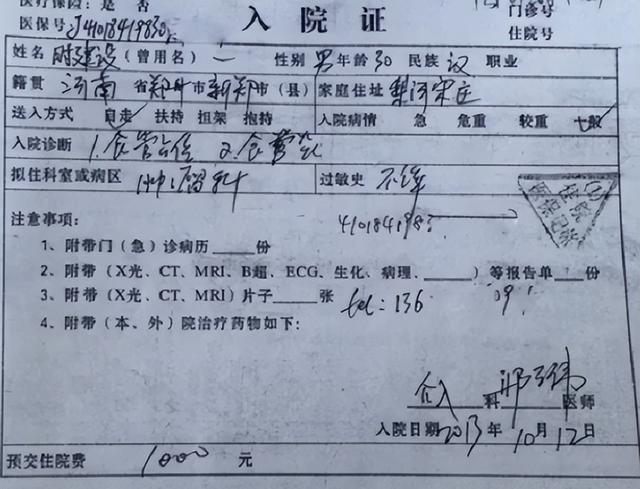 医疗保险：是 否
门诊号
医保号：
入院证
住院号
姓名 时建设（曾用名）一 性别 男 年龄 30 民族 汉 职业
籍贯 河南 省 郑州 市 新郑 市（县） 家庭住址 梨河宋庄
送入方式 自走 扶持 担架 抱持 入院病情 急 危重 较重 一般
入院诊断 1.食管占位 2.食管
拟住科室或病区 肿瘤科 过敏史 不详
注意事项：
住院
医保
4101841983
1、附带门（急）诊病历____份
2、附带（X光、CT、MRI、B超、ECG、生化、病理、____）等报告单__份
3、附带（X光、CT、MRI）片子____张 tel：136
4、附带（本、外）院治疗药物如下：
介入 科 医师
入院日期 2013 年 10 月 12 日
预交住院费 1000 元